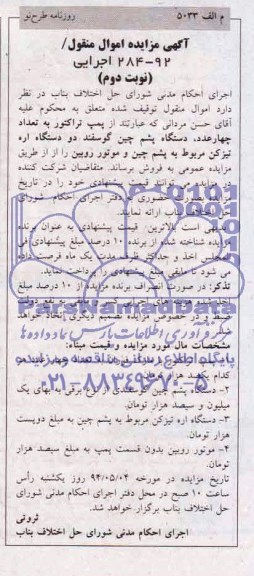 م الف ۵۰۳۳ روزنامه طرح‌نو
آگهی مزایده اموال منقول/
۲۸۴-۹۲ اجرایی
(نوبت دوم)
اجرای احکام مدنی شورای حل اختلاف بناب در نظر
دارد اموال منقول توقیف شده متعلق به محکوم علیه
آقای حسن مردانی که عبارتند از پمپ تراکتور به تعداد
چهارعدد، دستگاه پشم چین گوسفند دو دستگاه اره
تیزکن مربوط به پشم چین و موتور روبین را از از طریق
مزایده عمومی به فروش برساند. متقاضیان شرکت کننده
در مزایده می توانند قیمت پیشنهادی خود را در تاریخ
مزایده بصورت حضوری به دفتر اجرای احکام شورای
حل اختلاف بناب ارائه نمایند.
بدیهی است بالاترین قیمت پیشنهادی به عنوان برنده
مزایده شناخته شده از برنده ۱۰ درصد مبلغ پیشنهادی فی
المجلس اخذ و حداکثر ظرف مدت یک ماه فرصت داده
می شود تا مابقی مبلغ پیشنهادی را پرداخت نماید.
تذکر: در صورت انصراف برنده مزایده از ۱۰ درصد مبلغ
ضبط و در خصوص مزایده تصمیم دیگری اتخاذ خواهد
شد.
مشخصات مال مورد مزایده و قیمت مبناء:
پایگاه اطلاع رسانی مناقصه و مزایده
۰۲۱-۸۸۳۴۹۶۷۰-۵
۲- دستگاه پشم چین گوسفندی از نوع برقی به بهای یک
میلیون و سیصد هزار تومان.
۳- دستگاه اره تیزکن مربوط به پشم چین به مبلغ دویست
هزار تومان.
۴- موتور روبین بدون قسمت پمپ به مبلغ سیصد هزار
تومان.
تاریخ مزایده در مورخه ۹۴/۰۵/۰۴ روز یکشنبه رأس
ساعت ۱۰ صبح در محل دفتر اجرای احکام مدنی شورای
حل اختلاف بناب برگزار خواهد شد.
ثروتی
اجرای احکام مدنی شورای حل اختلاف بناب